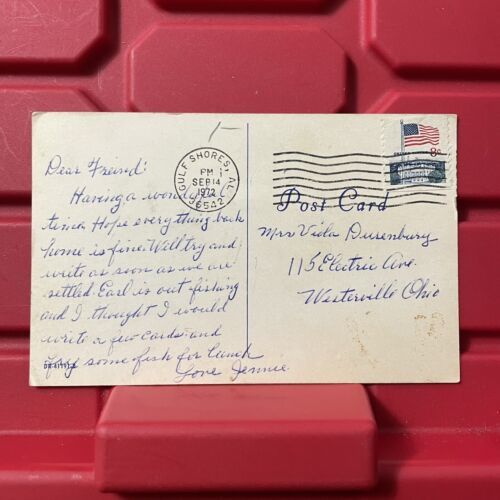 Dear Freind:
Having a wonderful
time. Hope everything back
home is fine. Will try and
write as soon as we are
settled. Earl is out fishing
and I thought I would
write a few cards and
fry some fish for lunch
Love Jennie
GULF SHORES, AL
PM
SEP 14
1972
36542
8c
Post Card
Mrs Viola Dusenbury
115 Electric Ave.
Westerville Ohio